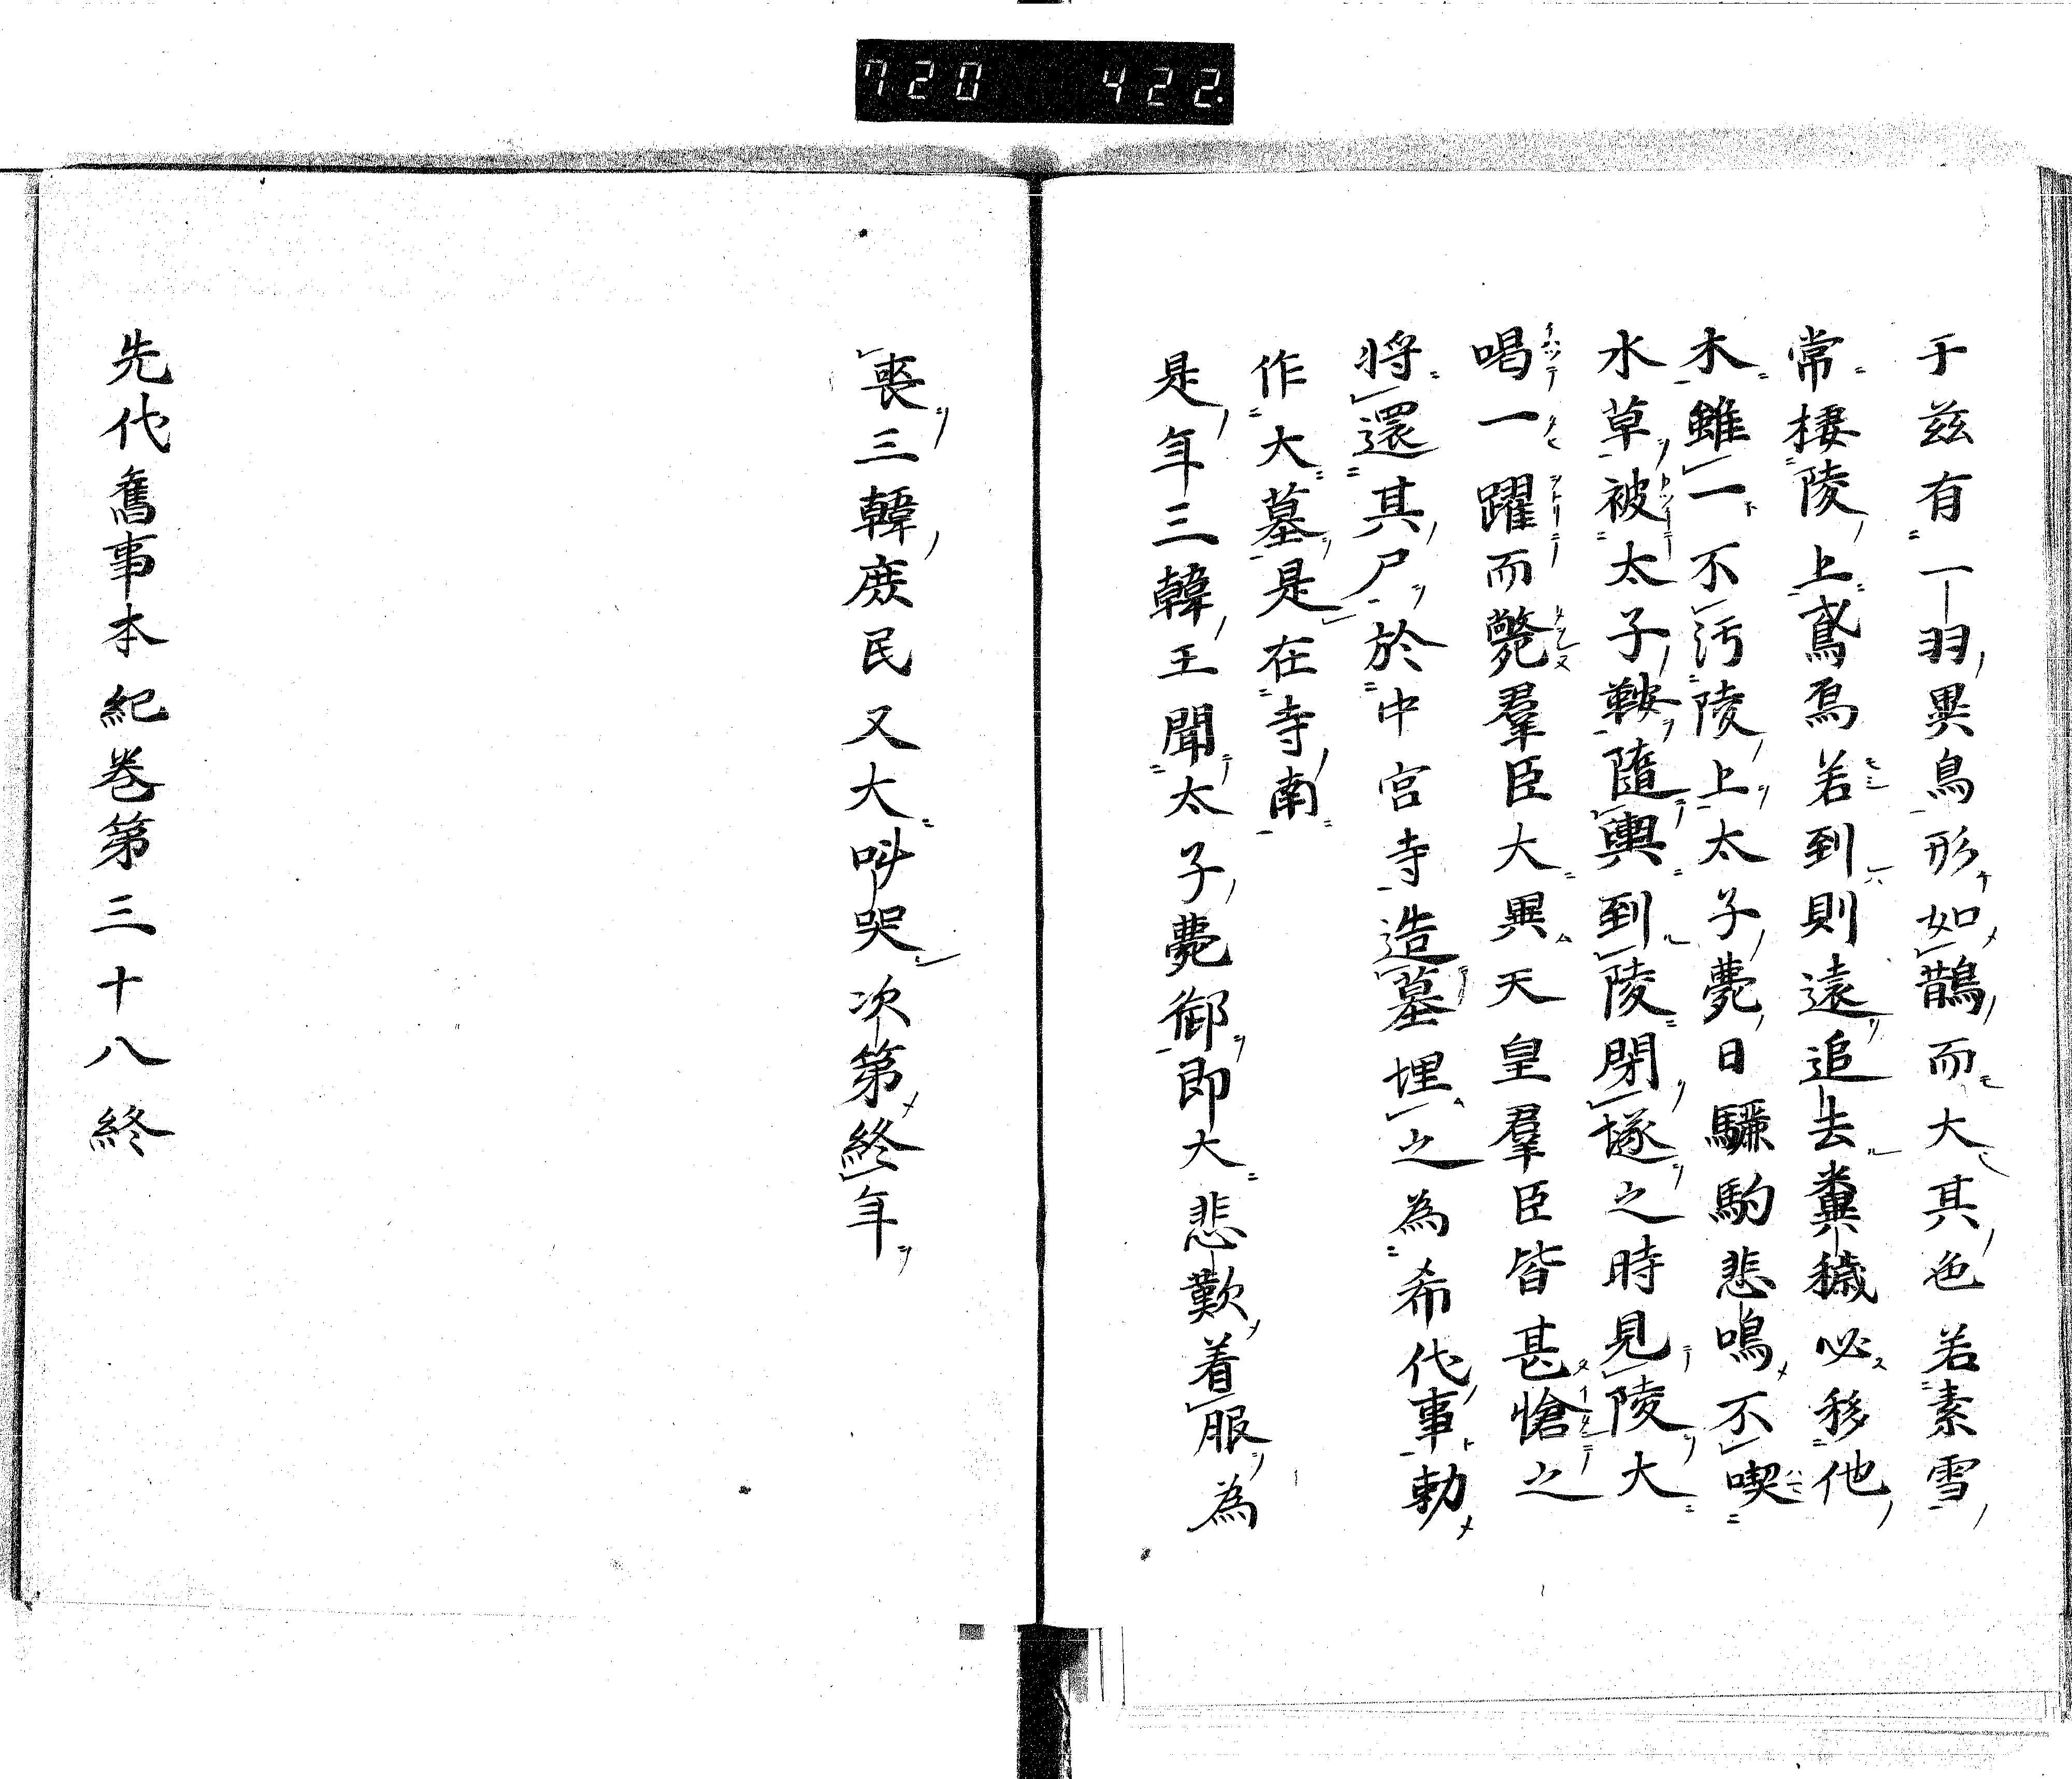 720 422.
于茲有一羽異鳥形如鵲而大其色若素雪
常棲陵上鳶烏若到則遠追去糞穢必移他
木雖一不汚陵上太子薨日驪駒悲鳴不喫
水草被太子鞍隨輿到陵閉墜之時見陵大
喝一躍而斃羣臣大異天皇羣臣皆甚愴之
將還其尸於中宮寺造墓埋之為希代事勅
作大墓是在寺南
是年三韓王聞太子薨御即大悲歎着服為
喪三韓庶民又大叫哭次第終年
先代舊事本紀卷第三十八終